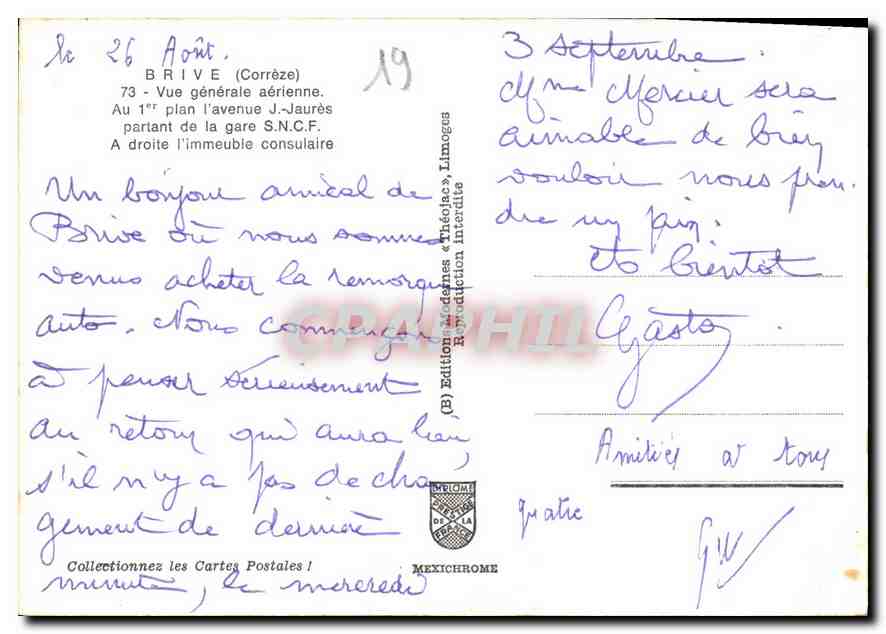 le 26 Août.
19
BRIVE (Corrèze)
73 - Vue générale aérienne.
Au 1er plan l'avenue J.-Jaurès
partant de la gare S.N.C.F.
A droite l'immeuble consulaire
Un bonjour amical de
Brive où nous sommes
venus acheter la remorque
auto. Nous commençons
à penser sérieusement
au retour qui aura lieu,
s'il n'y a pas de chan
gement de dernière
minute, le mercredi
Collectionnez les Cartes Postales !
(B) Editions Modernes « Théojac », Limoges
Reproduction interdite
CPAPHIL
DIPLOME
PRESTIGE
DE LA
FRANCE
MEXICHROME
3 septembre.
Mme Mercier sera
aimable de bien
vouloir nous pren-
dre un pain.
A bientôt
Gaston
Amitiés à tous
quatre
GW